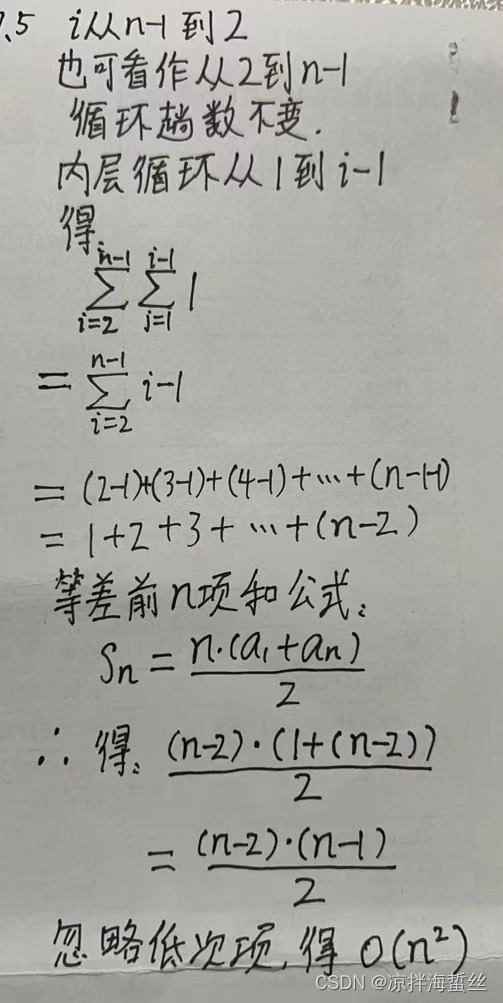 7.5 i从n-1到2
也可看作从2到n-1
循环趟数不变.
内层循环从1到i-1
得
n-1 i-1
∑ ∑ 1
i=2 j=1
n-1
= ∑ i-1
i=2
= (2-1)+(3-1)+(4-1)+…+(n-1-1)
= 1+2+3+…+(n-2)
等差前n项和公式:
Sn = n·(a1+an)/2
∴ 得: (n-2)·(1+(n-2))/2
= (n-2)·(n-1)/2
忽略低次项,得 O(n²)
CSDN @凉拌海蜇丝